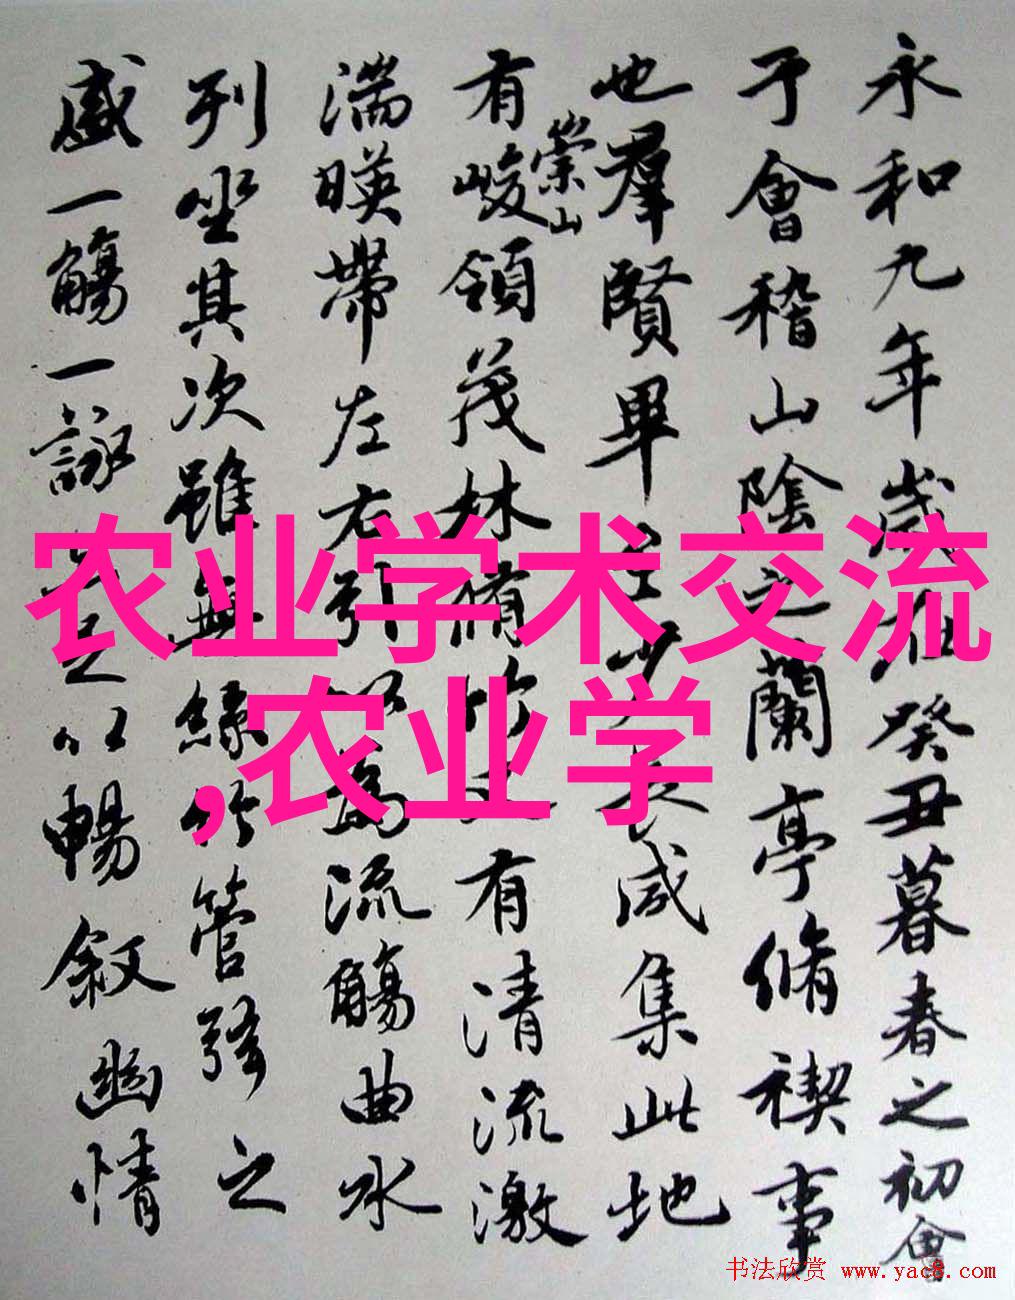 永和九年歲在癸丑暮春之初會
于會稽山陰之蘭亭脩禊事
也羣賢畢至少長咸集此地
有崇山峻領茂林脩竹又有清流激
湍暎帶左右引以為流觴曲水
列坐其次雖無絲竹管弦之
盛一觴一詠足以暢叙幽情
农业学术交流
,农业学
书法欣赏 www.yac8.com